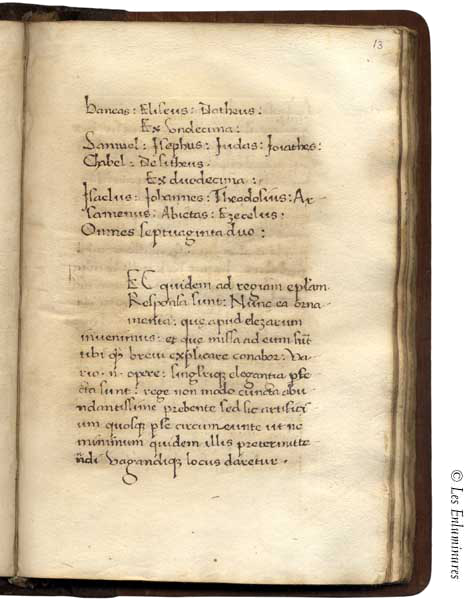 13
bancas : Eliseus : Datheus :
Ex Undecima :
Samuel : Isephus : Judas : Joiathes :
Chabel : Desitheus .
Ex duodecima :
Isaelus : Iohannes : Theadosius : Ar
samenus : Abictas : Ezecelus :
Onmes septuaginta duo :
EC quidem ad regiam epłam
Responsa sunt : Nunc ea orna
menta : que apud elezarum
invenimus : et que missa ad eum sūt
tibi qm̄ brevi explicare conabor : Va
rio .n. opere : singlrīqȝ elegantia pfe
cta sunt : rege non modo cuncta abu
ndantissime prebente sed sic artifici
um quosqȝ pse circumeunte ut ne
minimum quidem illis pretermitte
ndi vagandiqȝ locus daretur .
© Les Enluminures